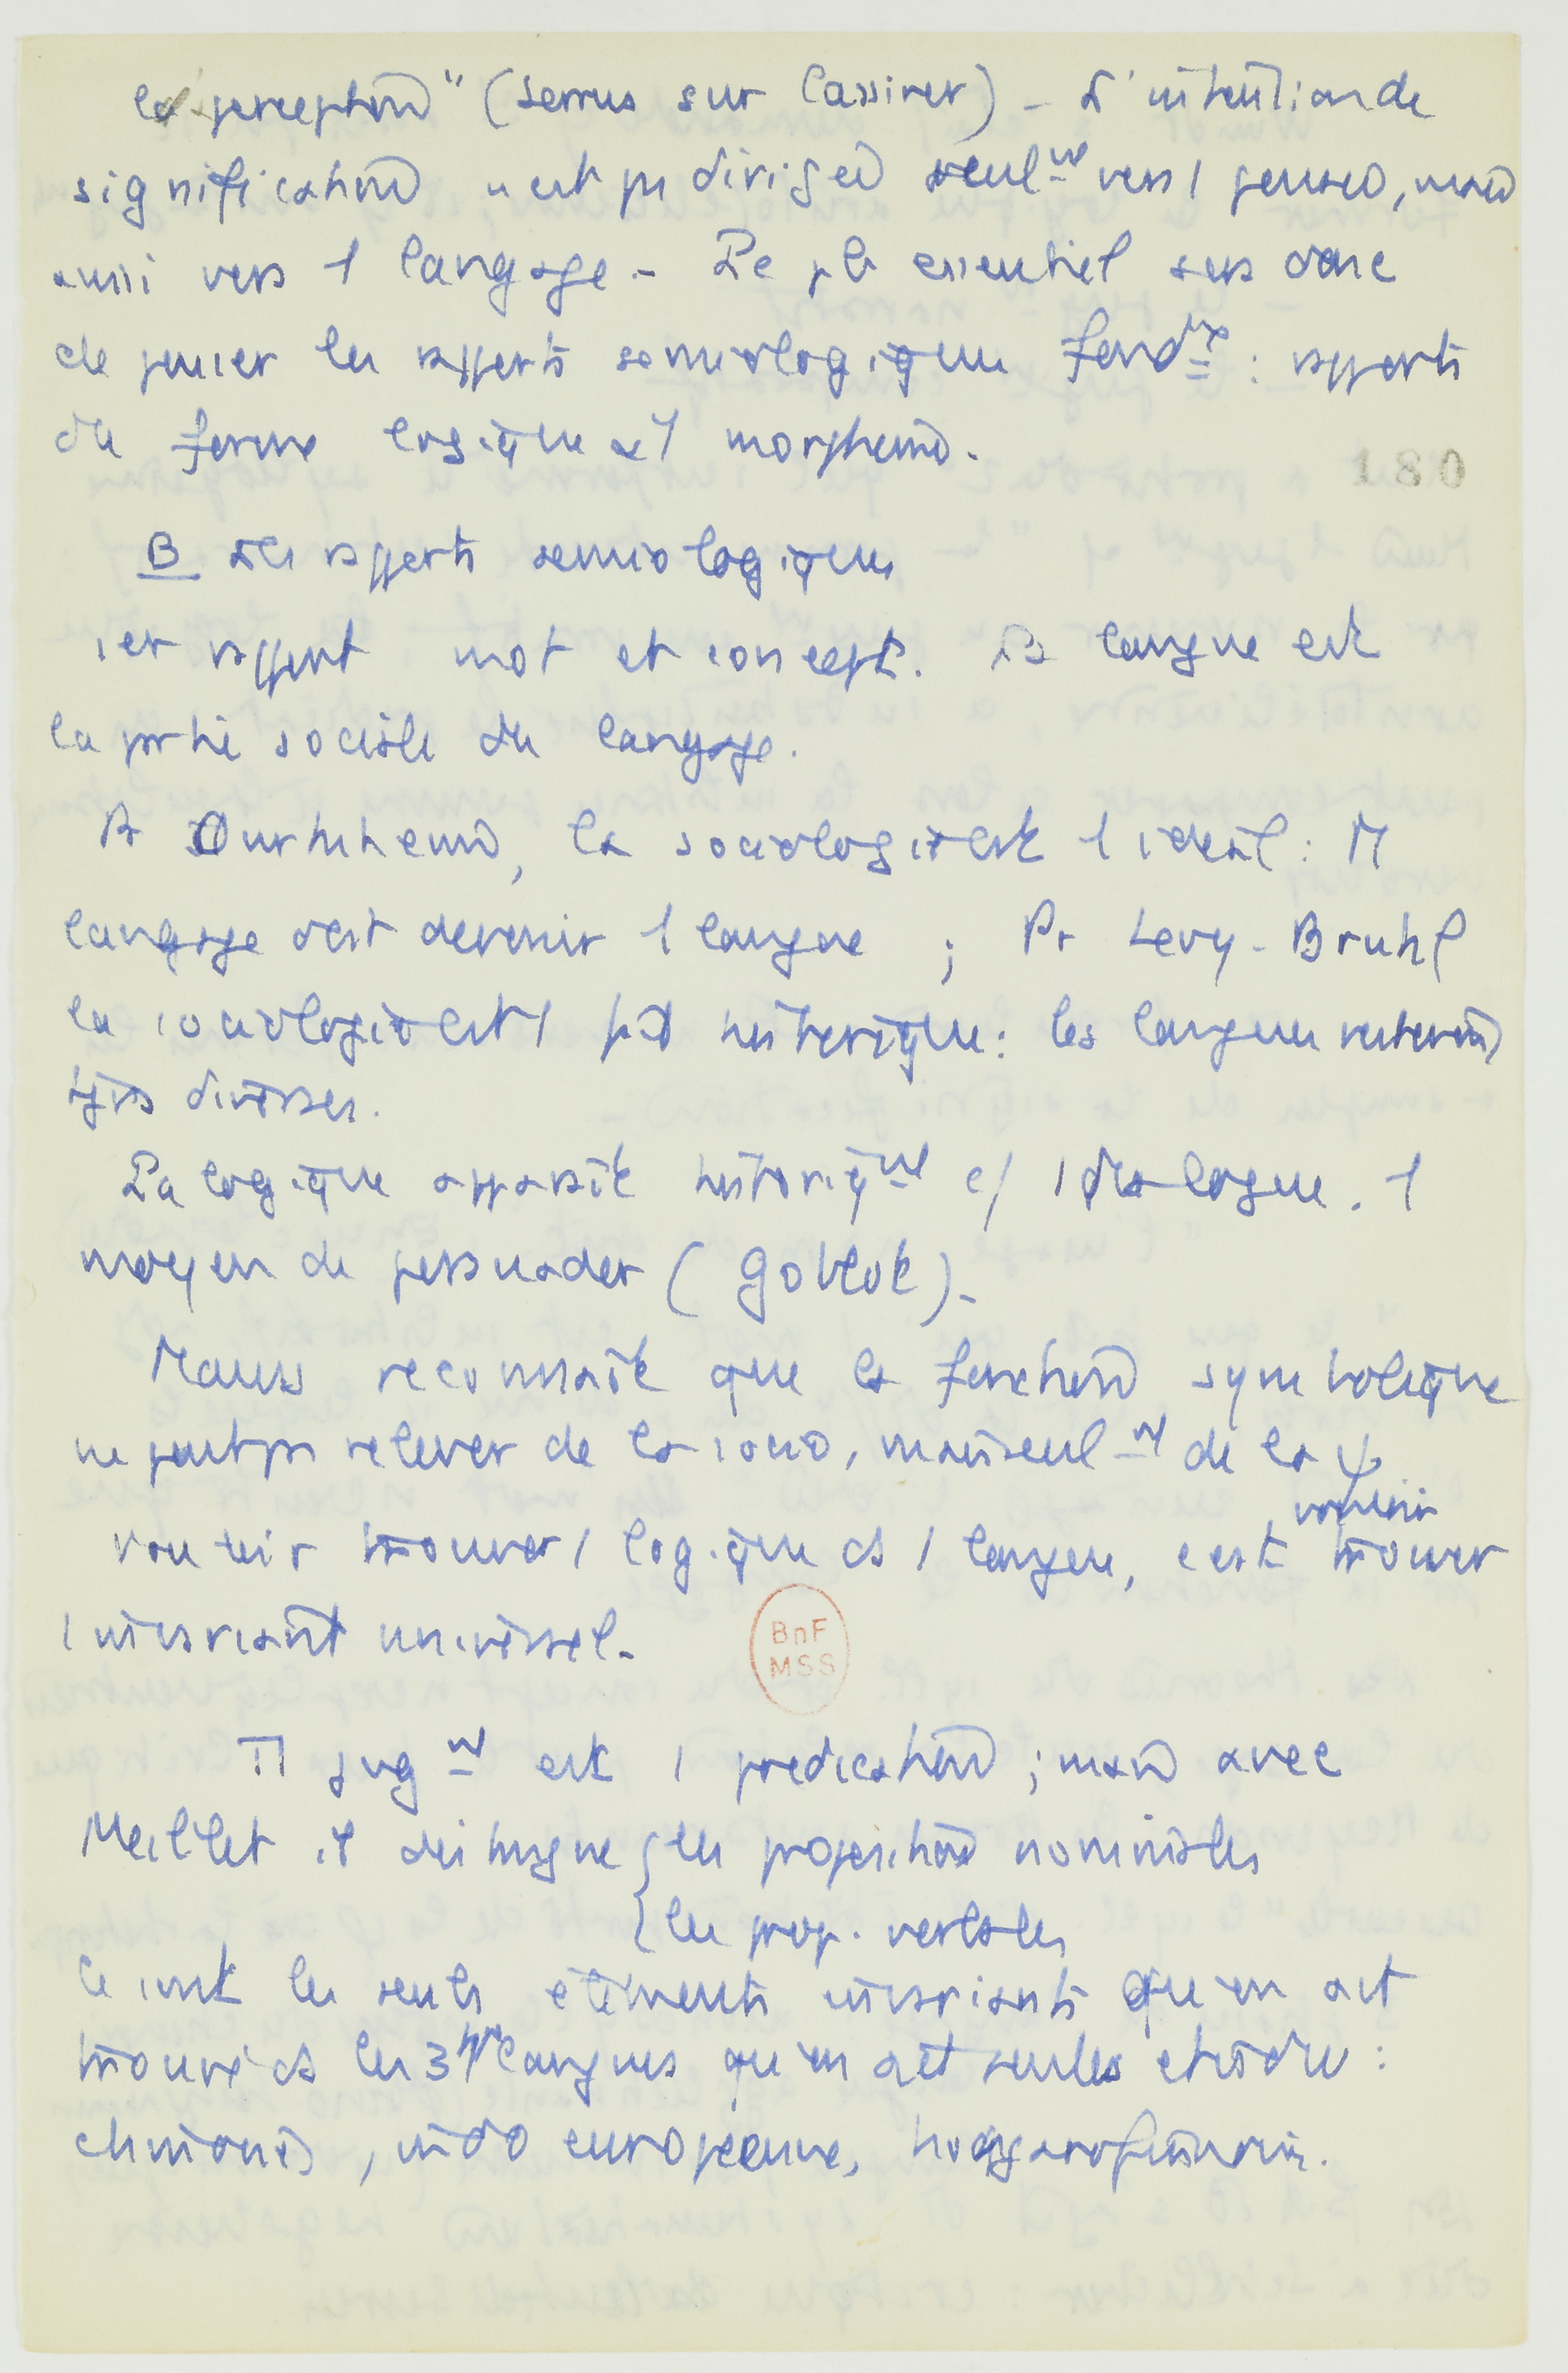 la perception" (Serrus sur Cassirer) - L'intention de
signification n'est pas dirigée seulmt vers 1 pensée, mais
aussi vers 1 langage - Le pb essentiel sera donc
de penser les rapports semiologiques fondtx : rapports
de forme logique et 1 morpheme.
180
B Les rapports semiologiques
1er rapport mot et concept. La langue est
la partie sociale du langage.
Pr Durkheim, la sociologie est 1 idéal : Tt
langage doit devenir 1 langue ; Pr Levy-Bruhl
la sociologie est 1 fait historique : les langues resteront
tjrs diverses.
La logique apparaît historiqmt c/ 1 dialogue. 1
moyen de persuader (Goblot) -
Mauss reconnaît que la fonction symbolique
ne peut pas relever de la socio, mais seulmt de la ψ
vouloir
vouloir trouver 1 logique ds 1 langue, c'est trouver
1 invariant universel.
BnF
MSS
Tt jugmt est 1 prédication ; mais avec
Meillet il distingue { les propositions nominales
{ les prop. verbales
Ce sont les seuls éléments invariants qu'on ait
trouvé ds les 3 langues qu'on ait seules étudiées :
chinois, indo européenne,